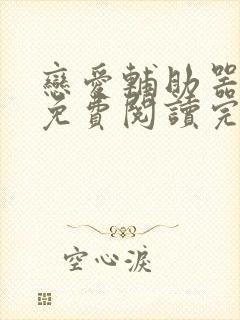 戀愛輔助器
免費閱讀完
空心淚